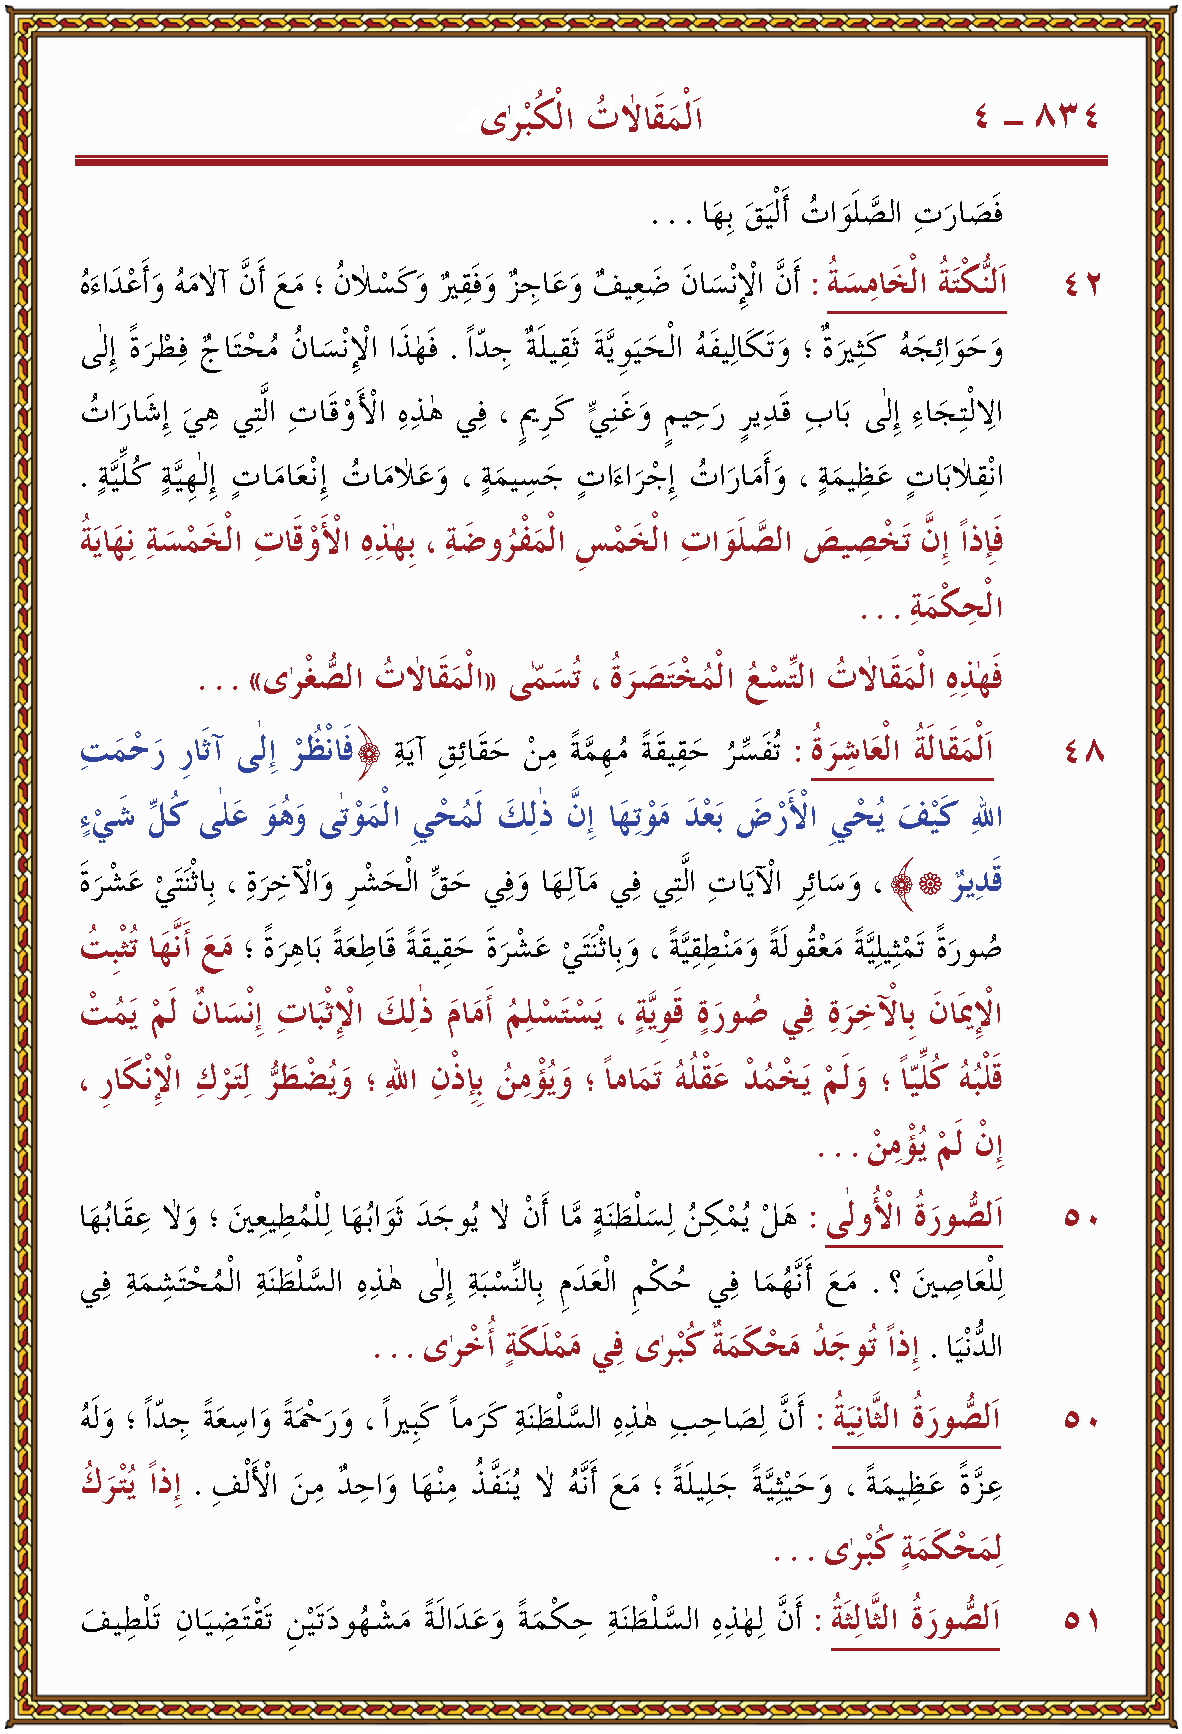 ٨٣٤ – ٤ اَلْمَقَالَاتُ الْكُبْرٰى
فَصَارَتِ الصَّلَوَاتُ أَلْيَقَ بِهَا . . .
٤٢ اَلنُّكْتَةُ الْخَامِسَةُ : أَنَّ الْإِنْسَانَ ضَعِيفٌ وَعَاجِزٌ وَفَقِيرٌ وَكَسْلَانُ ؛ مَعَ أَنَّ آلَامَهُ وَأَعْدَاءَهُ
وَحَوَائِجَهُ كَثِيرَةٌ ؛ وَتَكَالِيفَهُ الْحَيَوِيَّةَ ثَقِيلَةٌ جِدّاً . فَهٰذَا الْإِنْسَانُ مُحْتَاجٌ فِطْرَةً إِلَى
الِالْتِجَاءِ إِلَى بَابِ قَدِيرٍ رَحِيمٍ وَغَنِيٍّ كَرِيمٍ ، فِي هٰذِهِ الْأَوْقَاتِ الَّتِي هِيَ إِشَارَاتُ
انْقِلَابَاتٍ عَظِيمَةٍ ، وَأَمَارَاتُ إِجْرَاءَاتٍ جَسِيمَةٍ ، وَعَلَامَاتُ إِنْعَامَاتٍ إِلٰهِيَّةٍ كُلِّيَّةٍ .
فَإِذاً إِنَّ تَخْصِيصَ الصَّلَوَاتِ الْخَمْسِ الْمَفْرُوضَةِ ، بِهٰذِهِ الْأَوْقَاتِ الْخَمْسَةِ نِهَايَةُ
الْحِكْمَةِ . . .
فَهٰذِهِ الْمَقَالَاتُ التِّسْعُ الْمُخْتَصَرَةُ ، تُسَمّٰى «الْمَقَالَاتُ الصُّغْرٰى» . . .
٤٨ اَلْمَقَالَةُ الْعَاشِرَةُ : تُفَسِّرُ حَقِيقَةً مُهِمَّةً مِنْ حَقَائِقِ آيَةِ ﴿فَانْظُرْ إِلٰى آثَارِ رَحْمَتِ
اللهِ كَيْفَ يُحْيِي الْأَرْضَ بَعْدَ مَوْتِهَا إِنَّ ذٰلِكَ لَمُحْيِي الْمَوْتٰى وَهُوَ عَلٰى كُلِّ شَيْءٍ
قَدِيرٌ ۞﴾ ، وَسَائِرِ الْآيَاتِ الَّتِي فِي مَآلِهَا وَفِي حَقِّ الْحَشْرِ وَالْآخِرَةِ ، بِاثْنَتَيْ عَشْرَةَ
صُورَةً تَمْثِيلِيَّةً مَعْقُولَةً وَمَنْطِقِيَّةً ، وَبِاثْنَتَيْ عَشْرَةَ حَقِيقَةً قَاطِعَةً بَاهِرَةً ؛ مَعَ أَنَّهَا تُثْبِتُ
الْإِيمَانَ بِالْآخِرَةِ فِي صُورَةٍ قَوِيَّةٍ ، يَسْتَسْلِمُ أَمَامَ ذٰلِكَ الْإِثْبَاتِ إِنْسَانٌ لَمْ يَمُتْ
قَلْبُهُ كُلِّيّاً ؛ وَلَمْ يَخْمُدْ عَقْلُهُ تَمَاماً ؛ وَيُؤْمِنُ بِإِذْنِ اللهِ ؛ وَيُضْطَرُّ لِتَرْكِ الْإِنْكَارِ ،
إِنْ لَمْ يُؤْمِنْ . . .
٥٠ اَلصُّورَةُ الْأُولٰى : هَلْ يُمْكِنُ لِسَلْطَنَةٍ مَّا أَنْ لَا يُوجَدَ ثَوَابُهَا لِلْمُطِيعِينَ ؛ وَلَا عِقَابُهَا
لِلْعَاصِينَ ؟ . مَعَ أَنَّهُمَا فِي حُكْمِ الْعَدَمِ بِالنِّسْبَةِ إِلَى هٰذِهِ السَّلْطَنَةِ الْمُحْتَشِمَةِ فِي
الدُّنْيَا . إِذاً تُوجَدُ مَحْكَمَةٌ كُبْرٰى فِي مَمْلَكَةٍ أُخْرٰى . . .
٥٠ اَلصُّورَةُ الثَّانِيَةُ : أَنَّ لِصَاحِبِ هٰذِهِ السَّلْطَنَةِ كَرَماً كَبِيراً ، وَرَحْمَةً وَاسِعَةً جِدّاً ؛ وَلَهُ
عِزَّةً عَظِيمَةً ، وَحَيْثِيَّةً جَلِيلَةً ؛ مَعَ أَنَّهُ لَا يُنَفَّذُ مِنْهَا وَاحِدٌ مِنَ الْأَلْفِ . إِذاً يُتْرَكُ
لِمَحْكَمَةٍ كُبْرٰى . . .
٥١ اَلصُّورَةُ الثَّالِثَةُ : أَنَّ لِهٰذِهِ السَّلْطَنَةِ حِكْمَةً وَعَدَالَةً مَشْهُودَتَيْنِ تَقْتَضِيَانِ تَلْطِيفَ